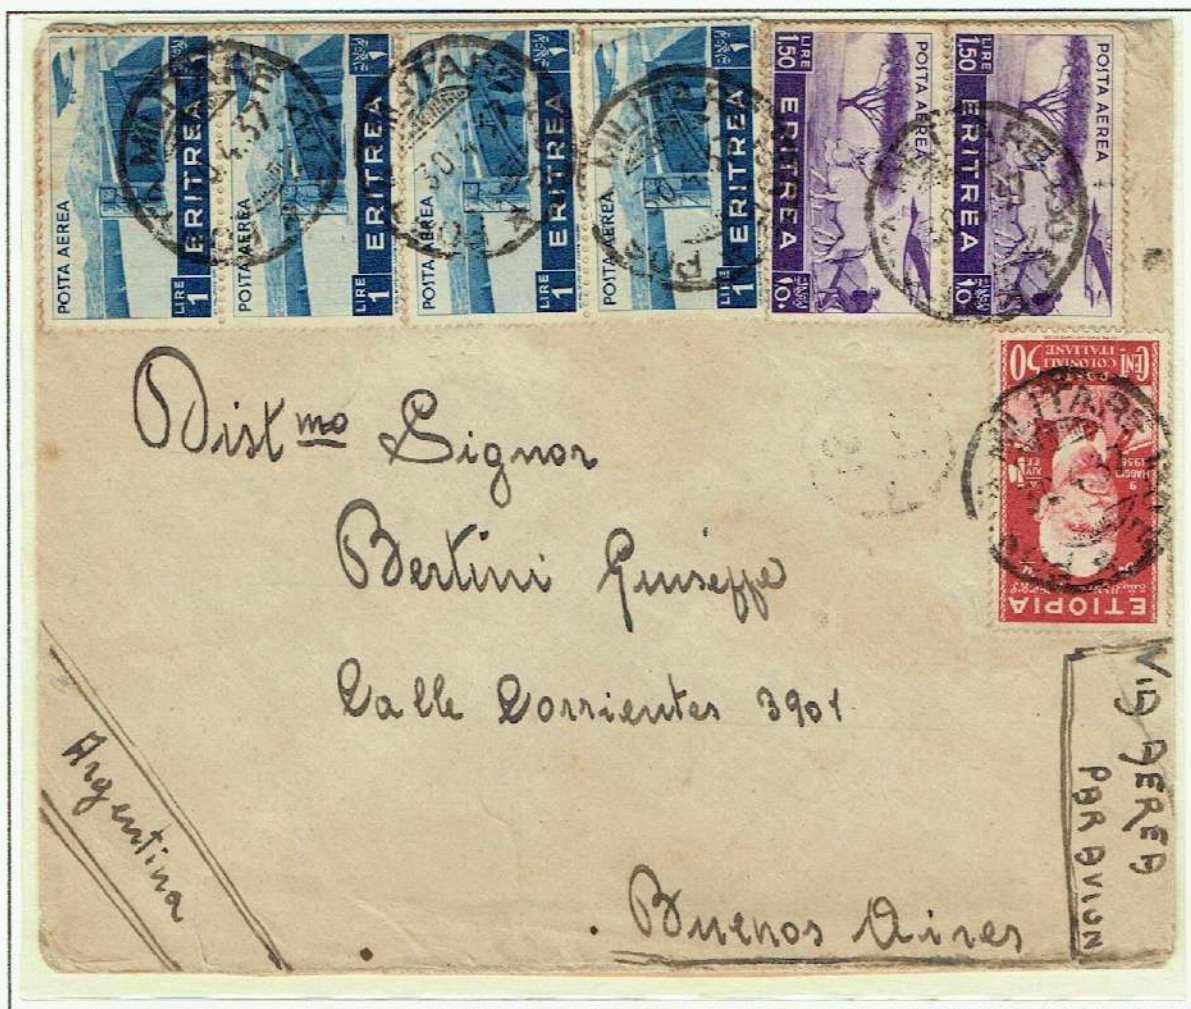 POSTA AEREA ERITREA LIRE 1
POSTA AEREA ERITREA LIRE 1
POSTA AEREA ERITREA LIRE 1
POSTA AEREA ERITREA LIRE 1
LIRE 1,50 ERITREA POSTA AEREA
LIRE 1,50 ERITREA POSTA AEREA
MILITARE
30 4 37
MILITARE
CENT 50
POSTE COLONIALI
ITALIANE
9
MAGGIO
1936
XIV
E.F.
ETIOPIA
MILITARE
Dist mo Signor
Bertini Giuseppe
Calle Corrientes 3901
Buenos Aires
Argentina
VIA AEREA
PAR AVION